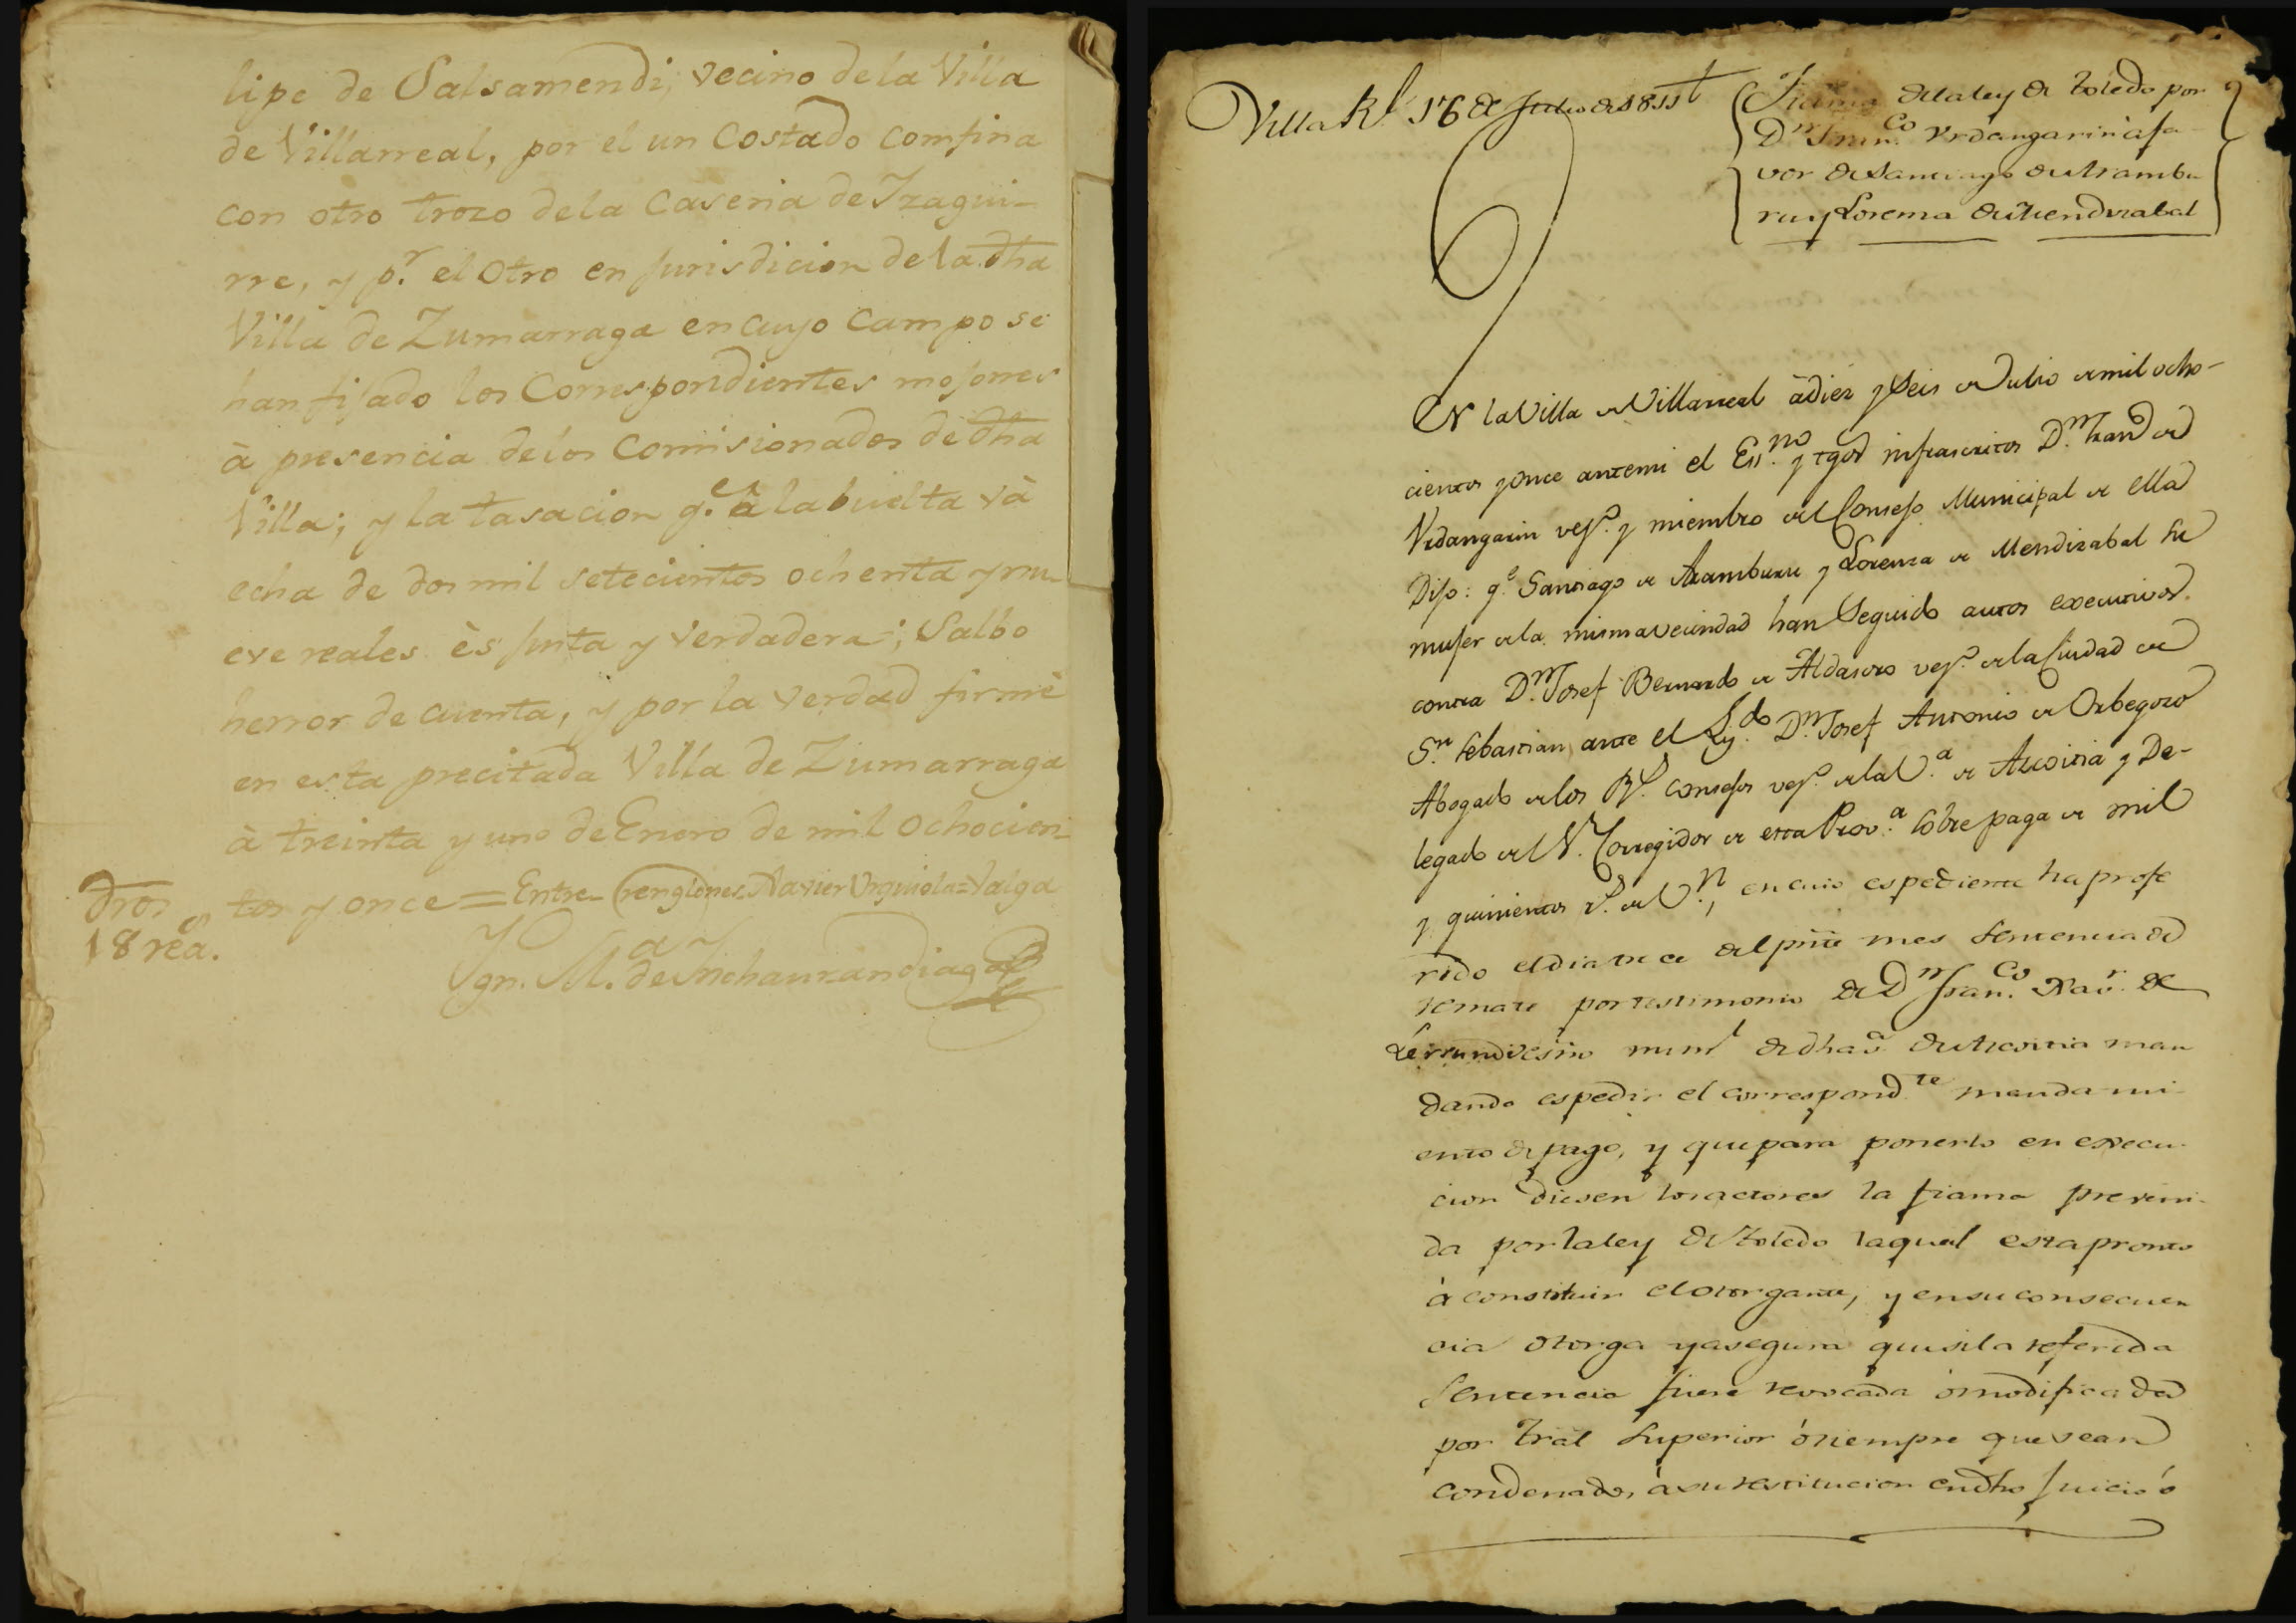 lipe de Salsamendi, vecino de la Villa
de Villarreal, por el un Costado confina
con otro trozo dela Caseria de Yzagui-
rre, y p.r el Otro en jurisdicion de la dha
Villa de Zumarraga en cuyo campo se
han fijado los Correspondientes mojones
à presencia delos Comisionados de dha
Villa; y la tasacion q.e à la buelta và
echa de dos mil setecientos ochenta y nu-
eve reales ès justa y verdadera; Salbo
herror de cuenta, y por la verdad firmè
en esta precitada Villa de Zumarraga
à treinta y uno de Enero de mil ochocien-
tos y once = Entre-renglones-Xavier Urquiola=Valga
Dros
18 rea.s
Ygn. M.a de Ynchaurandiaga
Villa R.l 16 de Julio de 1811
Fianza dela ley de Toledo por
D.n Fran.co Urdangarin à fa-
vor de Santiago de Arambu-
ru y Lorenza de Mendizabal
EN la Villa de Villarreal à diez y seis de Julio de mil ocho-
cientos y once ante mi el Ess.no y tgos infrascritos D.n Fran.co de
Urdangarin vez.o y miembro del Consejo Municipal de ella
Dijo: q.e Santiago de Aramburu y Lorenza de Mendizabal su
mujer de la misma vecindad han seguido autos executivos
contra D.n Josef Bernardo de Aldasoro vez.o de la Ciudad de
S.n Sebastian ante el Ly.do D.n Josef Antonio de Orbegozo
Abogado de los R.s Consejos vez.o de la V.a de Azcoitia y De-
legado del S.r Corregidor de esta Prov.a sobre paga de mil
y quinientos r.s de V.n, en cuio espediente ha profe-
rido el dia trece del pnte mes Sentencia de
remate por testimonio de D.n Fran.co Xav.r de
Lerrundi essno num.l de dha V.a de Azcoitia man-
dando espedir el correspond.te mandami-
ento de pago, y que para ponerlo en execu-
cion diesen los actores la fianza preveni-
da por la ley de Toledo la qual esta pronto
à constituir el otorgante, y en su consecuen-
cia otorga y asegura que si la referida
Sentencia fuere revocada ò modificada
por Tral Superior ò siempre que sean
condenados à su restitucion en dho Juicio ò